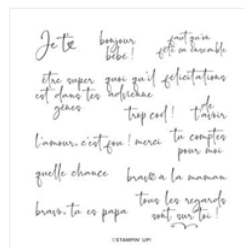 Je t'
bonjour
bébé !
faut qu'on
fête ça ensemble
être super
est dans tes
gènes
quoi qu'il
advienne
félicitations
trop cool !
t'
de
avoir
l'amour, c'est fou !
merci
tu comptes
pour moi
quelle chance
bravo à la maman
bravo, tu es papa
tous les regards
sont sur toi !
©STAMPIN' UP!